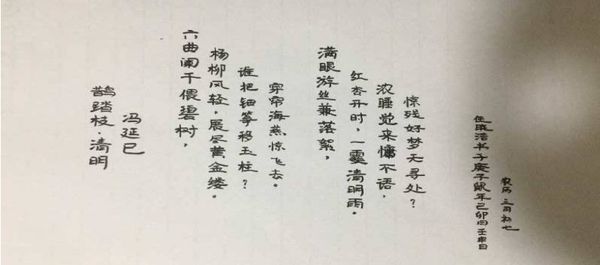 鹊踏枝·清明
冯延巳
六曲阑干偎碧树，
杨柳风轻，展尽黄金缕。
谁把钿筝移玉柱？
穿帘海燕惊飞去。
满眼游丝兼落絮，
红杏开时，一霎清明雨。
浓睡觉来慵不语，
惊残好梦无寻处？
书于庚子鼠年己卯壬申日
农历三月初七